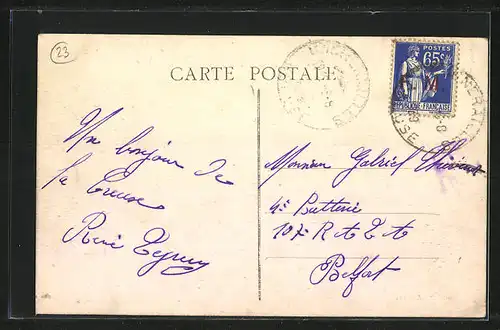 23
CARTE POSTALE
POSTES
65c
RÉPUBLIQUE FRANÇAISE
CREUSE
Un bonjour de
la Creuse
René
Monsieur Gabriel
4e Batterie
107e R A
Belfort